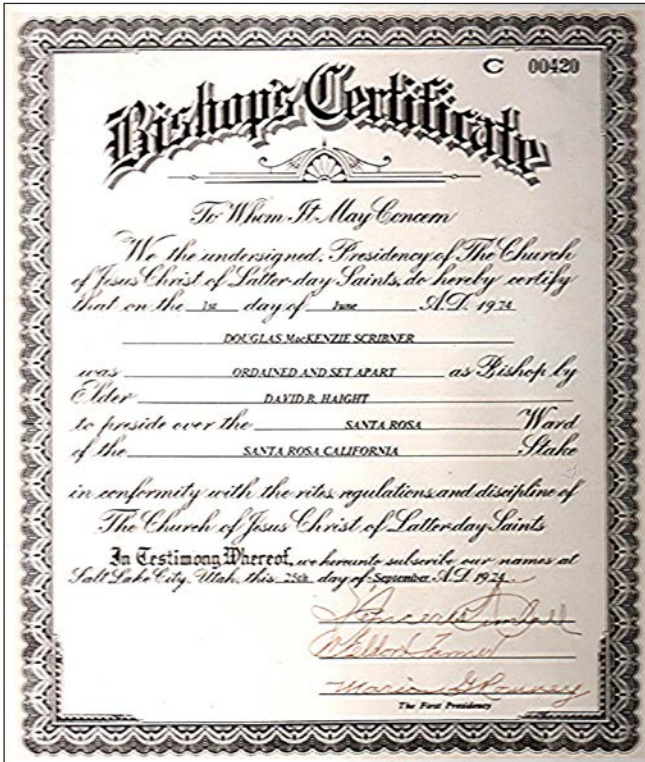 C 00420
Bishop's Certificate
To Whom It May Concern
We the undersigned, Presidency of The Church
of Jesus Christ of Latter-day Saints, do hereby certify
that on the 1st day of June A.D. 1974
DOUGLAS MacKENZIE SCRIBNER
was ORDAINED AND SET APART as Bishop by
Elder DAVID B. HAIGHT
to preside over the SANTA ROSA Ward
of the SANTA ROSA CALIFORNIA Stake
in conformity with the rites regulations and discipline of
The Church of Jesus Christ of Latter-day Saints
In Testimony Whereof, we hereunto subscribe our names at
Salt Lake City, Utah, this 25th day of September A.D. 1974.
Spencer W. Kimball
N Eldon Tanner
Marion G Romney
The First Presidency